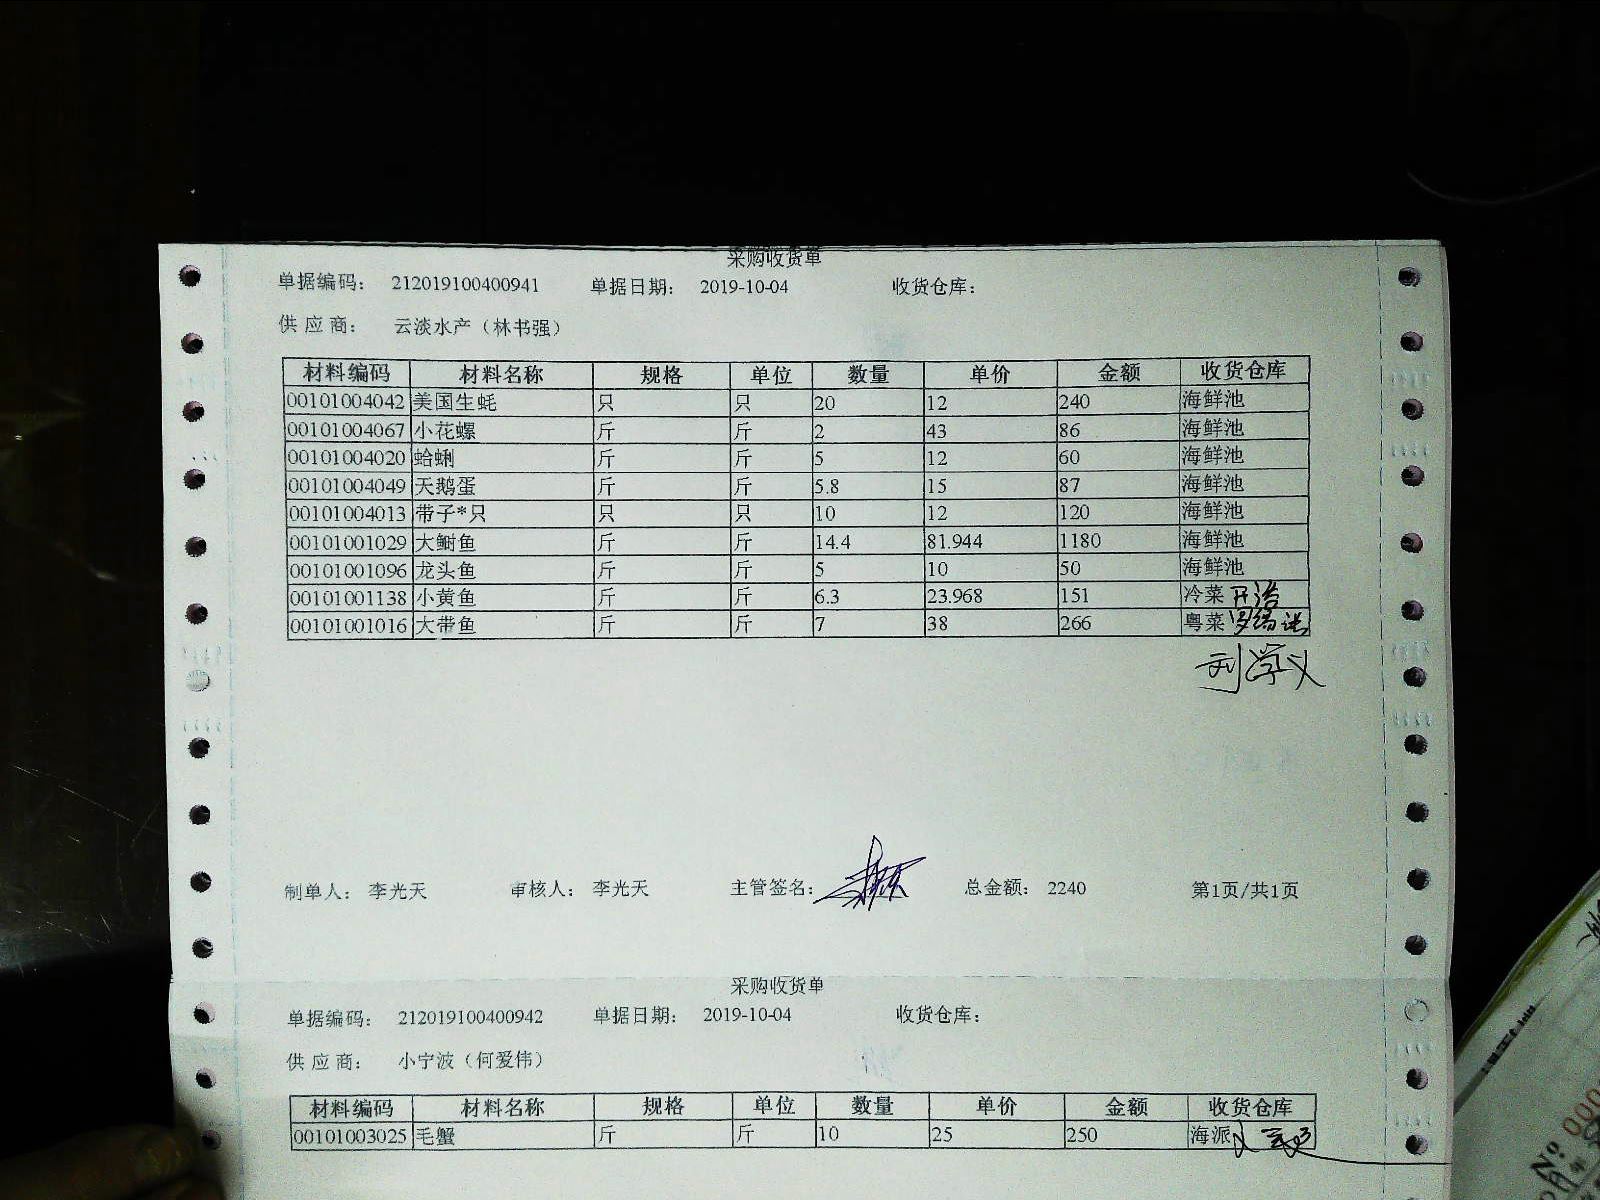 采购收货单
单据编码： 212019100400941 单据日期： 2019-10-04 收货仓库：
供 应 商： 云淡水产（林书强）
材料编码 材料名称 规格 单位 数量 单价 金额 收货仓库
00101004042 美国生蚝 只 只 20 12 240 海鲜池
00101004067 小花螺 斤 斤 2 43 86 海鲜池
00101004020 蛤蜊 斤 斤 5 12 60 海鲜池
00101004049 天鹅蛋 斤 斤 5.8 15 87 海鲜池
00101004013 带子*只 只 只 10 12 120 海鲜池
00101001029 大鲥鱼 斤 斤 14.4 81.944 1180 海鲜池
00101001096 龙头鱼 斤 斤 5 10 50 海鲜池
00101001138 小黄鱼 斤 斤 6.3 23.968 151 冷菜
00101001016 大带鱼 斤 斤 7 38 266 粤菜
刘学义
制单人： 李光天 审核人： 李光天 主管签名： 总金额： 2240 第1页/共1页
采购收货单
单据编码： 212019100400942 单据日期： 2019-10-04 收货仓库：
供 应 商： 小宁波（何爱伟）
材料编码 材料名称 规格 单位 数量 单价 金额 收货仓库
00101003025 毛蟹 斤 斤 10 25 250 海派